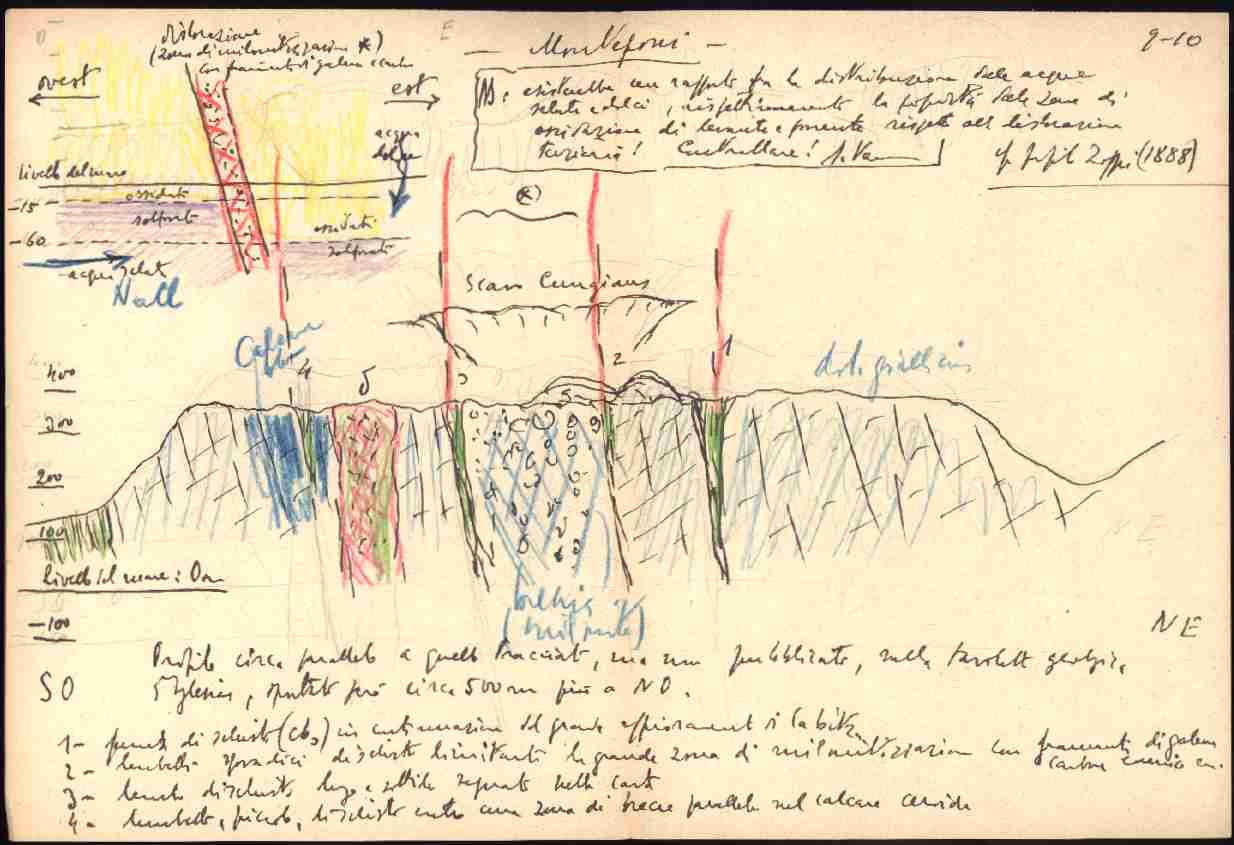 dislocazione
(zona di milonitizzazione *)
con frammenti di galena e
E
— Monteponi —
9-10
ovest
est
NB: esisterebbe un rapporto fra la distribuzione delle acque
salate e dolci, rispettivamente la profondità delle zone di
ossidazione di levante e ponente rispetto alla dislocazione
terziaria! Controllare!
cf profil Zoppi (1888)
acqua
dolce
livello del mare
-15
ossidati
solfuri
ossidati
solfuri
-60
acqua salata
NaCl
(*)
Scavo Cungiaus
Calcare
dol. giallina
4
5
3
2
1
400
300
200
100
Livello del mare: 0 m
-100
breccia
(milonite)
NE
SO
Profilo circa parallelo a quello tracciato, ma non pubblicato, nella tavoletta geologica
Iglesias, spostato però circa 500 m più a NO.
1- di scisto (Cb3) in continuazione del grande affioramento di Cabitza
2- lembetti sporadici di scisto limitanti la grande zona di milonitizzazione con frammenti di galena
3- di scisto lungo e sottile segnato nella carta
4- lembetto, piccolo, di scisto entro una zona di brecce parallele nel calcare ceroide